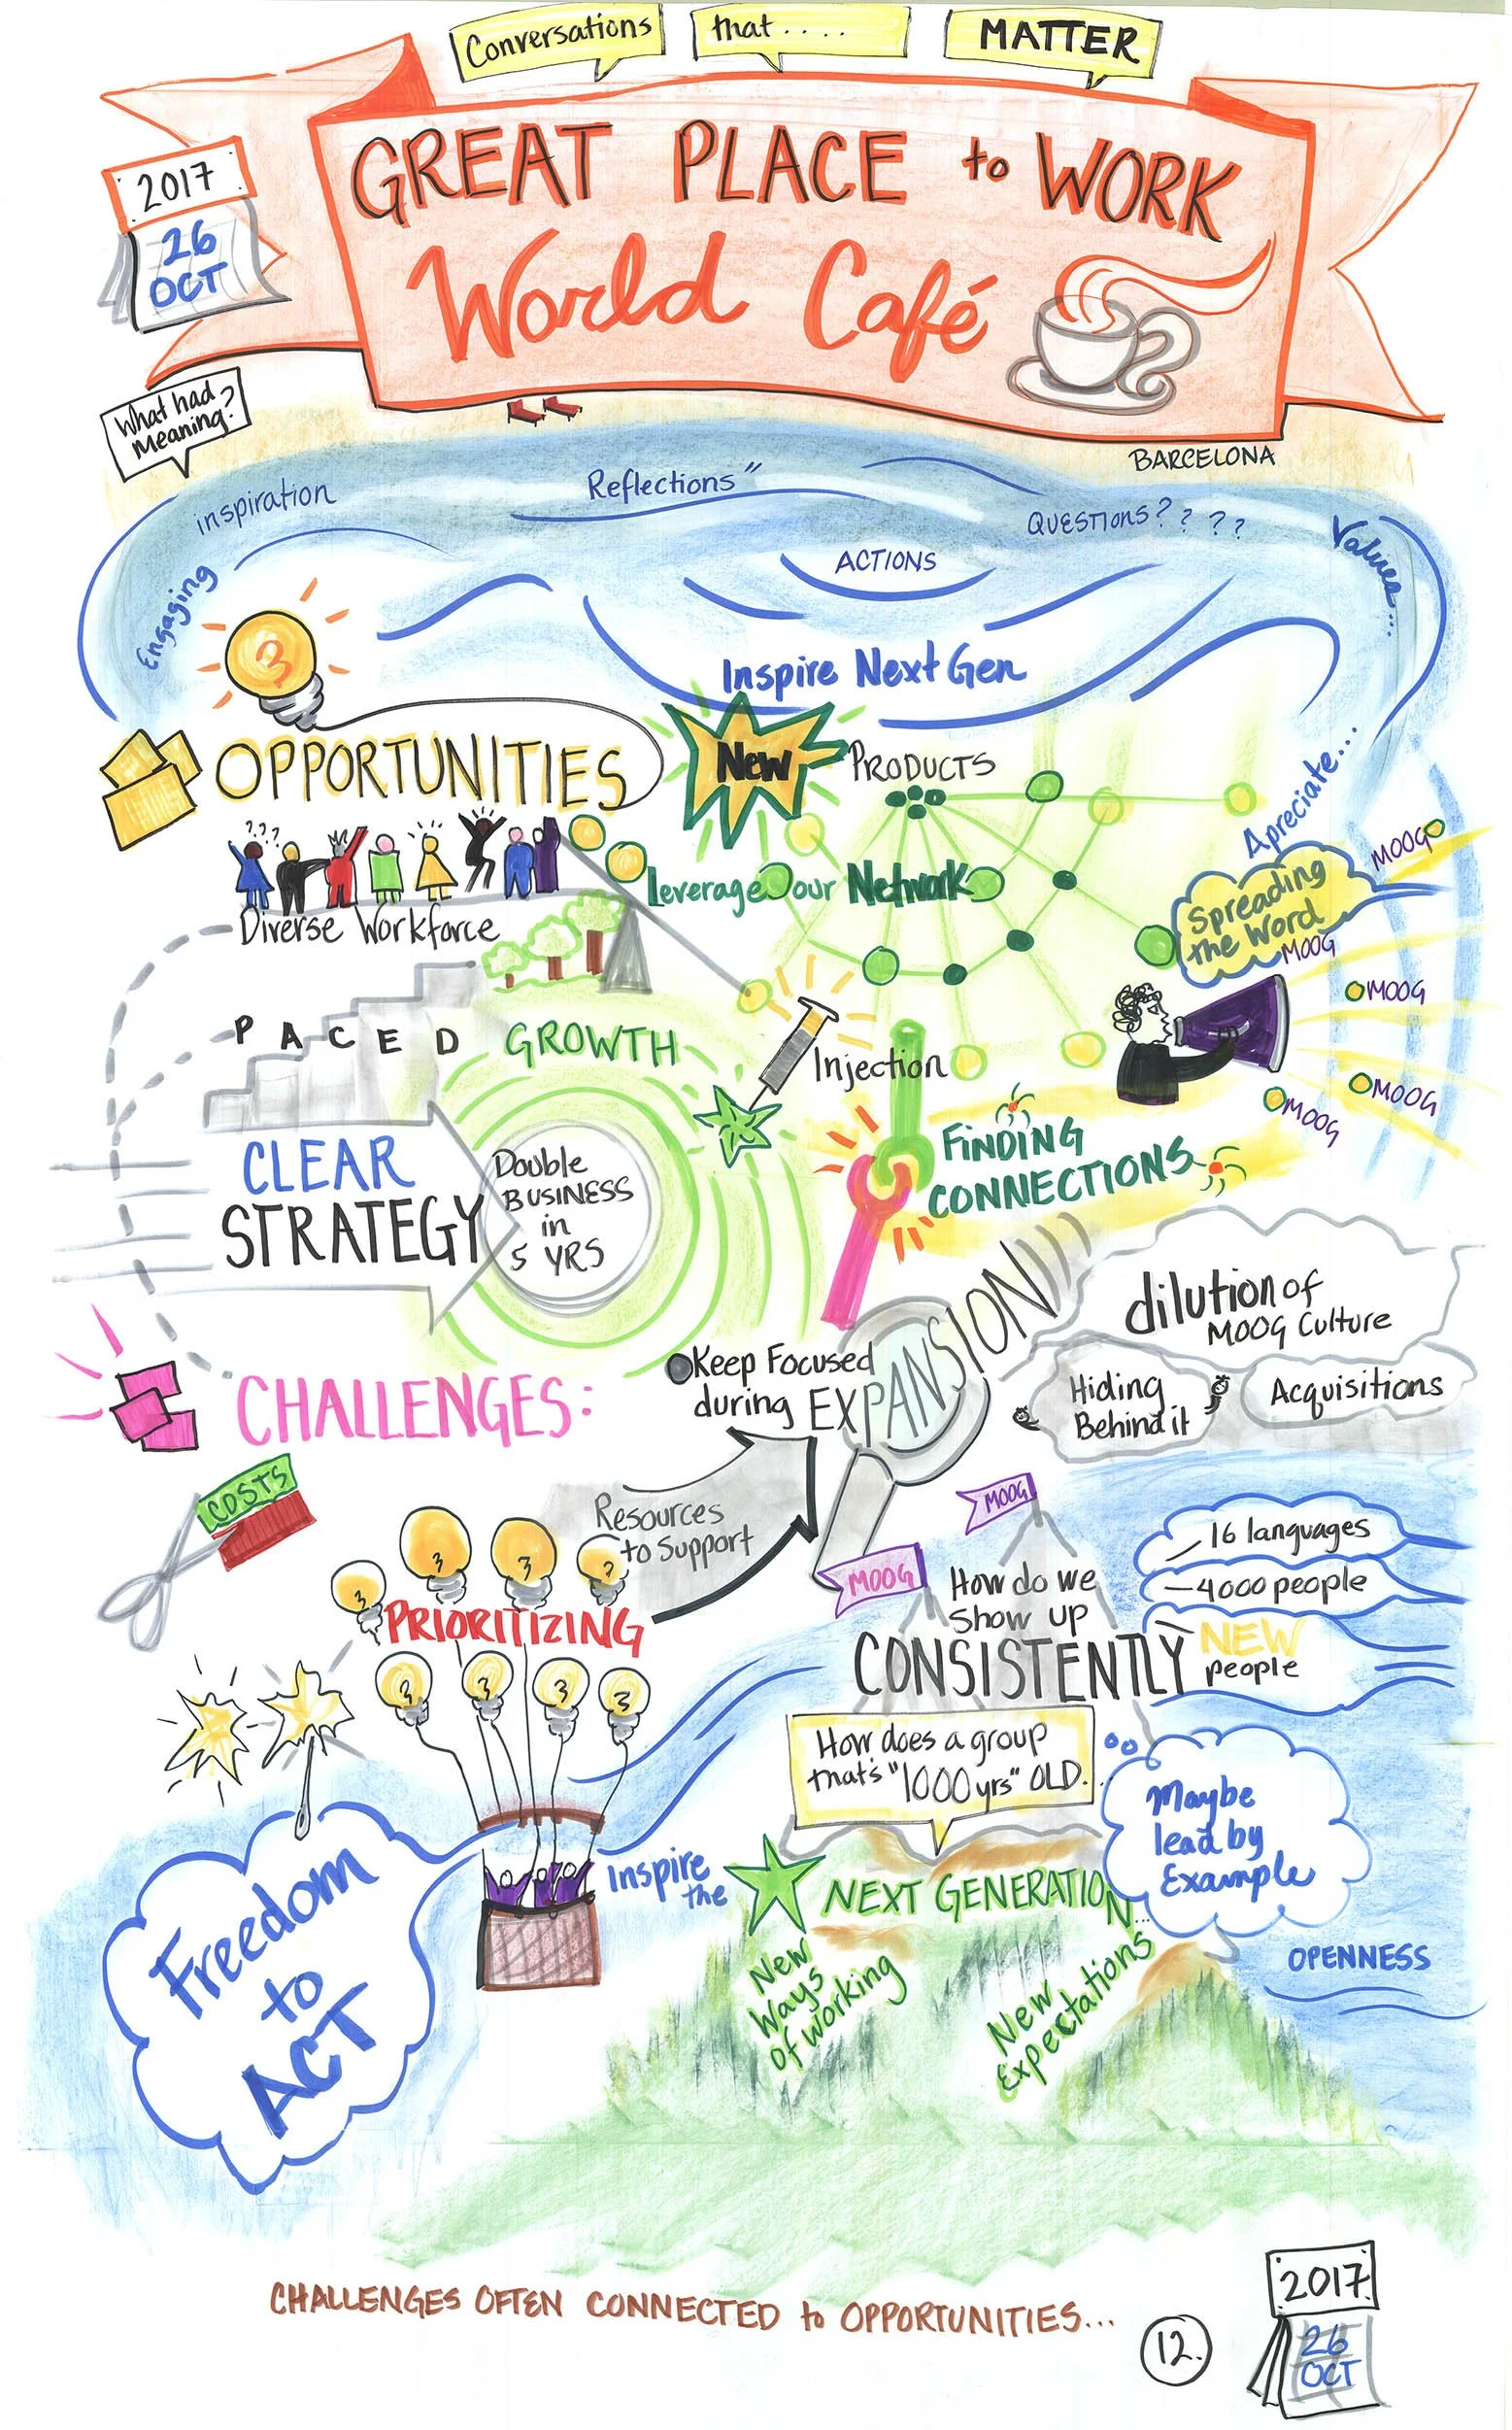 Conversations
that....
MATTER
GREAT PLACE to WORK
World Café
2017
26
OCT
What had
Meaning?
BARCELONA
inspiration
Reflections"
QUESTIONS? ? ? ?
Values...
Engaging
ACTIONS
Inspire Next Gen
OPPORTUNITIES
New
PRODUCTS
Apreciate....
???
Leverage our Network
Diverse Workforce
Spreading
the Word
MOOG
MOOG
MOOG
MOOG
MOOG
PACED GROWTH
Injection
FINDING
CONNECTIONS
CLEAR
STRATEGY
Double
BUSINESS
in
5 YRS
CHALLENGES:
Keep Focused
during EXPANSION
dilution of
MOOG Culture
Hiding
Behind it
Acquisitions
COSTS
Resources
to Support
PRIORITIZING
MOOG
MOOG
How do we
Show up
CONSISTENTLY
16 languages
—4000 people
NEW
people
How does a group
that's "1000 yrs" OLD..
Maybe
lead by
Example
Inspire
the
NEXT GENERATION...
New
Ways
of working
New
Expectations
OPENNESS
Freedom
to
ACT
CHALLENGES OFTEN CONNECTED to OPPORTUNITIES...
12.
2017
26
OCT